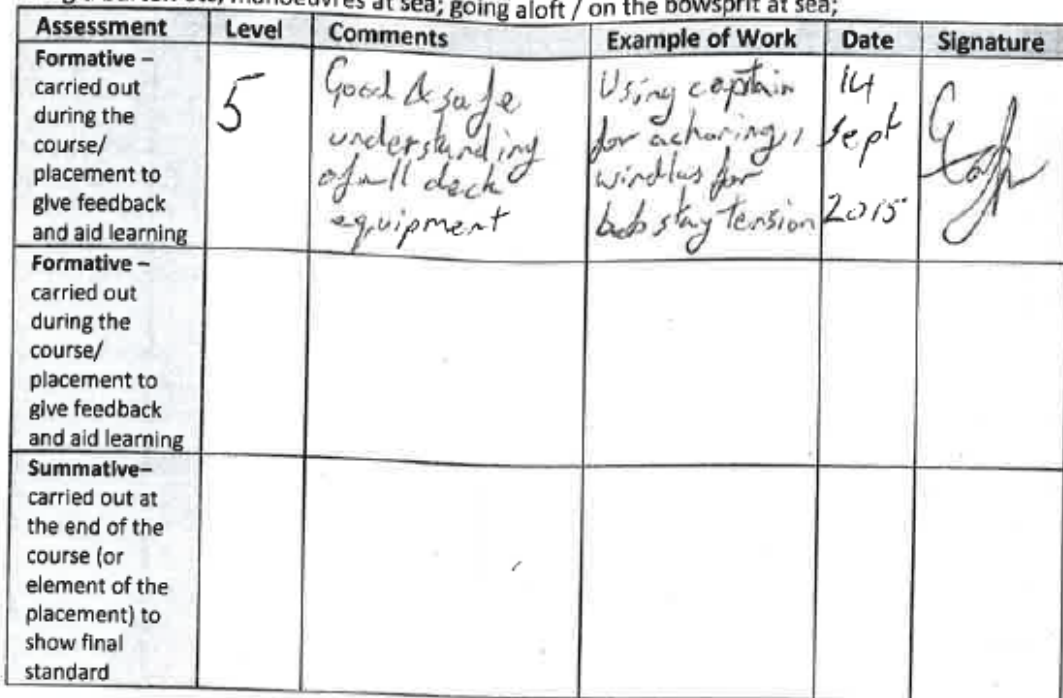 a burton etc; manoeuvres at sea; going aloft / on the bowsprit at sea;
Assessment Level Comments Example of Work Date Signature
Formative –
carried out
during the
course/
placement to
give feedback
and aid learning
5
Good & safe
understanding
of all deck
equipment
Using captain
for achoring,
windlas for
bobstay tension
14
Sept
2015
Formative –
carried out
during the
course/
placement to
give feedback
and aid learning
Summative–
carried out at
the end of the
course (or
element of the
placement) to
show final
standard